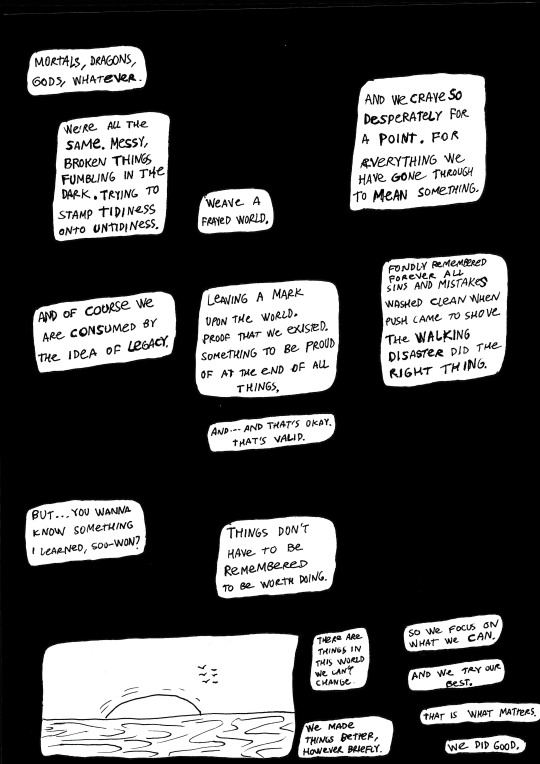 MORTALS, DRAGONS,
GODS, WHATEVER.
WE'RE ALL THE
SAME. MESSY,
BROKEN THINGS
FUMBLING IN THE
DARK. TRYING TO
STAMP TIDINESS
ONTO UNTIDINESS.
WEAVE A
FRAYED WORLD.
AND WE CRAVE SO
DESPERATELY FOR
A POINT. FOR
EVERYTHING WE
HAVE GONE THROUGH
TO MEAN SOMETHING.
AND OF COURSE WE
ARE CONSUMED BY
THE IDEA OF LEGACY.
LEAVING A MARK
UPON THE WORLD.
PROOF THAT WE EXISTED.
SOMETHING TO BE PROUD
OF AT THE END OF ALL
THINGS.
FONDLY REMEMBERED
FOREVER ALL
SINS AND MISTAKES
WASHED CLEAN WHEN
PUSH CAME TO SHOVE
THE WALKING
DISASTER DID THE
RIGHT THING.
AND... AND THAT'S OKAY.
THAT'S VALID.
BUT... YOU WANNA
KNOW SOMETHING
I LEARNED, SOO-WON?
THINGS DON'T
HAVE TO BE
REMEMBERED
TO BE WORTH DOING.
THERE ARE
THINGS IN
THIS WORLD
WE CAN'T
CHANGE.
SO WE FOCUS ON
WHAT WE CAN.
AND WE TRY OUR
BEST.
THAT IS WHAT MATTERS.
WE MADE
THINGS BETTER,
HOWEVER BRIEFLY.
WE DID GOOD.